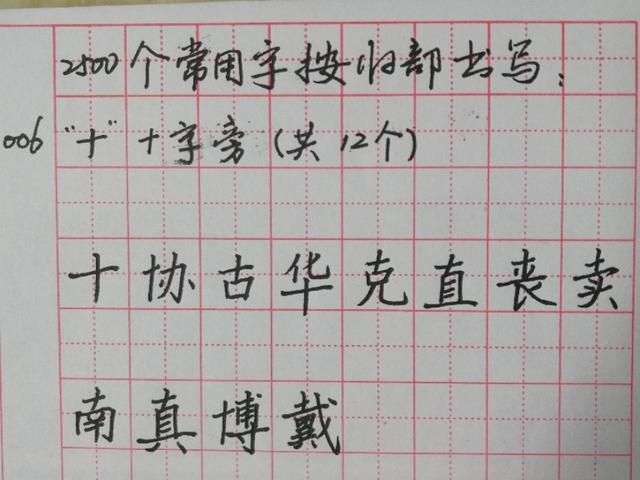 2500个常用字按归部书写：
006 "十"十字旁(共12个)
十协古华克直丧卖
南真博戴